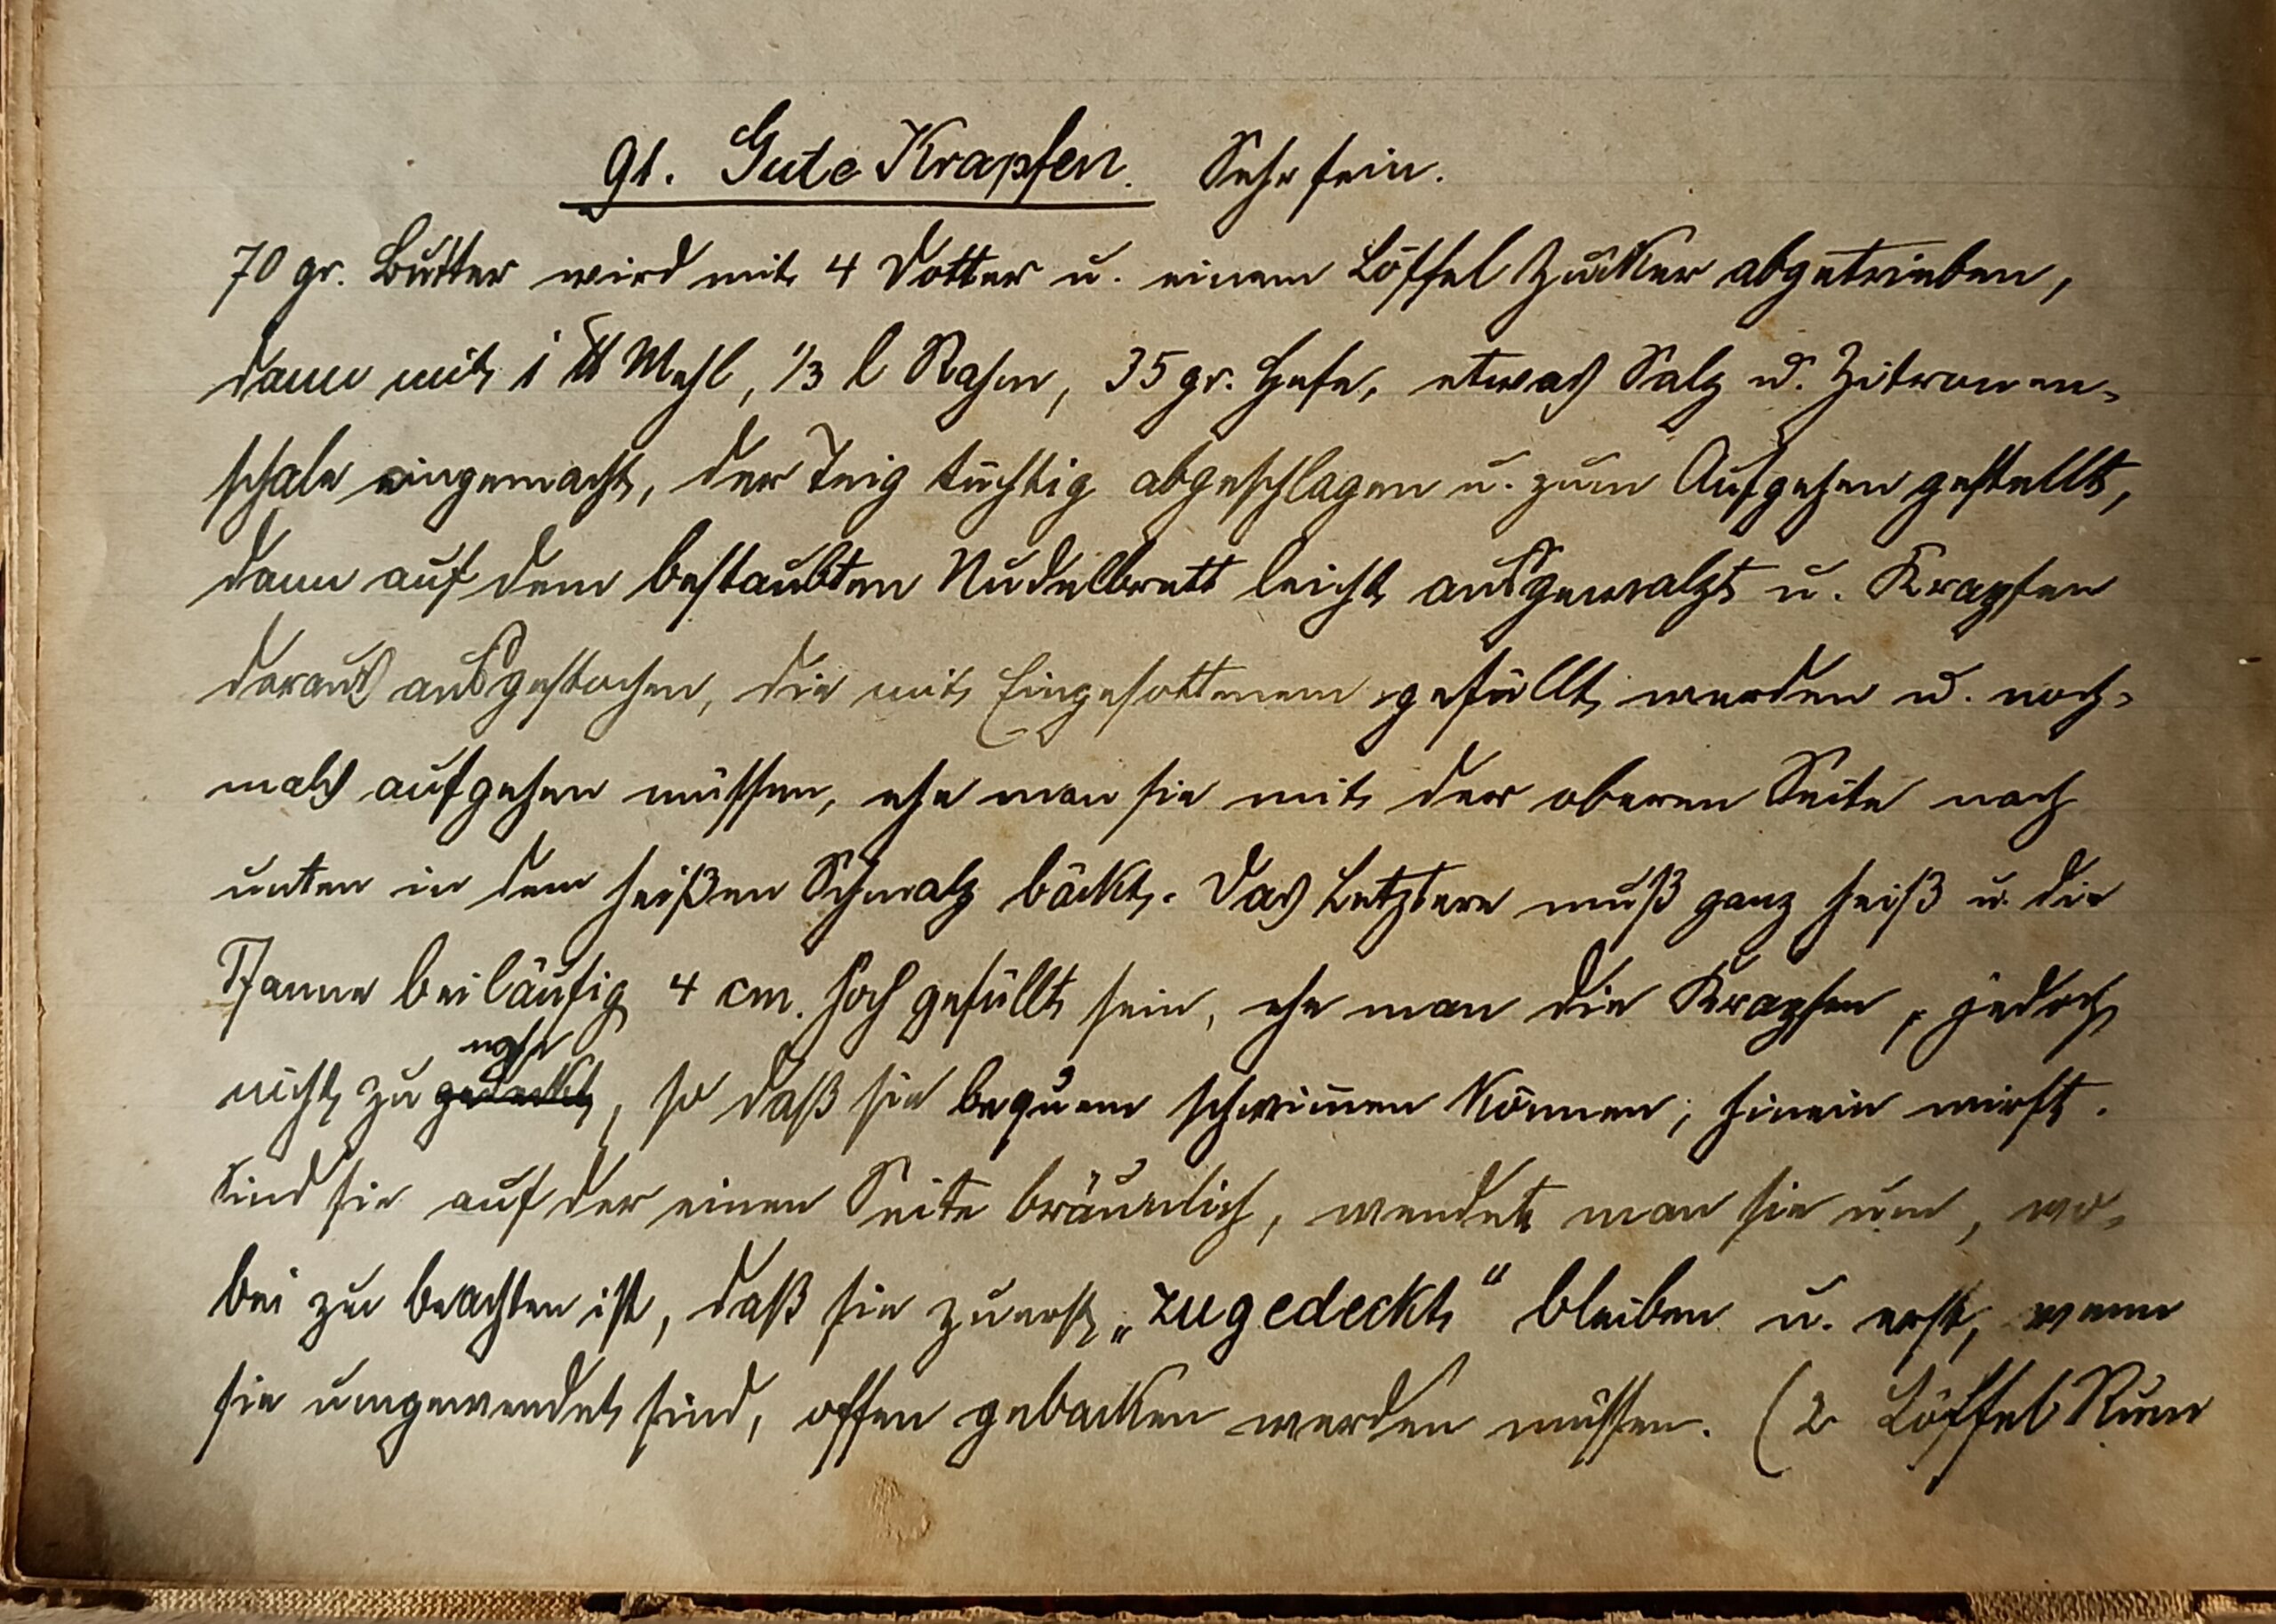 91. Gute Krapfen. Sehr fein.
70 gr. Butter wird mit 4 Dotter u. einem Löffel Zucker abgetrieben,
dann mit 1 ℔ Mehl, 1/3 l Rahm, 35 gr. Hefe, etwas Salz u. Zitronen-
schale eingemacht, der Teig tüchtig abgeschlagen u. zum Aufgehen gestellt,
dann auf dem bestaubten Nudelbrett leicht ausgewalzt u. Krapfen
daraus ausgestochen, die mit Eingesottenem gefüllt werden u. noch-
mals aufgehen müssen, ehe man sie mit der oberen Seite nach
unten in dem heißen Schmalz bäckt. Das Letztere muß ganz heiß u. die
Pfanne beiläufig 4 cm. hoch gefüllt sein, ehe man die Krapfen, jedoch
nahe
nicht zu gedeckt, so daß sie bequem schwim̄en können; hinein wirft.
Sind sie auf der einen Seite bräunlich, wendet man sie um, wo-
bei zu beachten ist, daß sie zuerst „zugedeckt" bleiben u. erst, wenn
sie umgewendet sind, offen gebacken werden müssen. (2 Löffel Rum